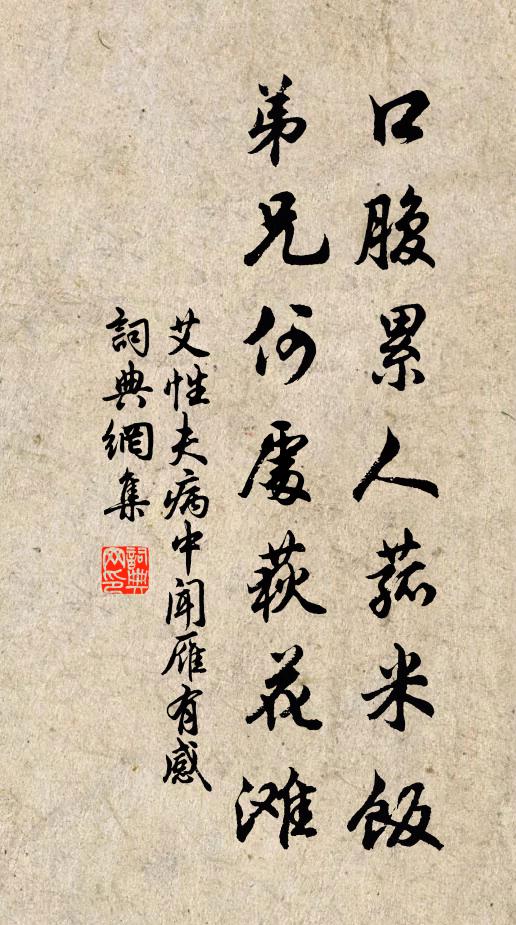 口腹累人菰米飯
弟兄何處荻花滩
艾性夫病中闻雁有感
詞典網集
詞典网印